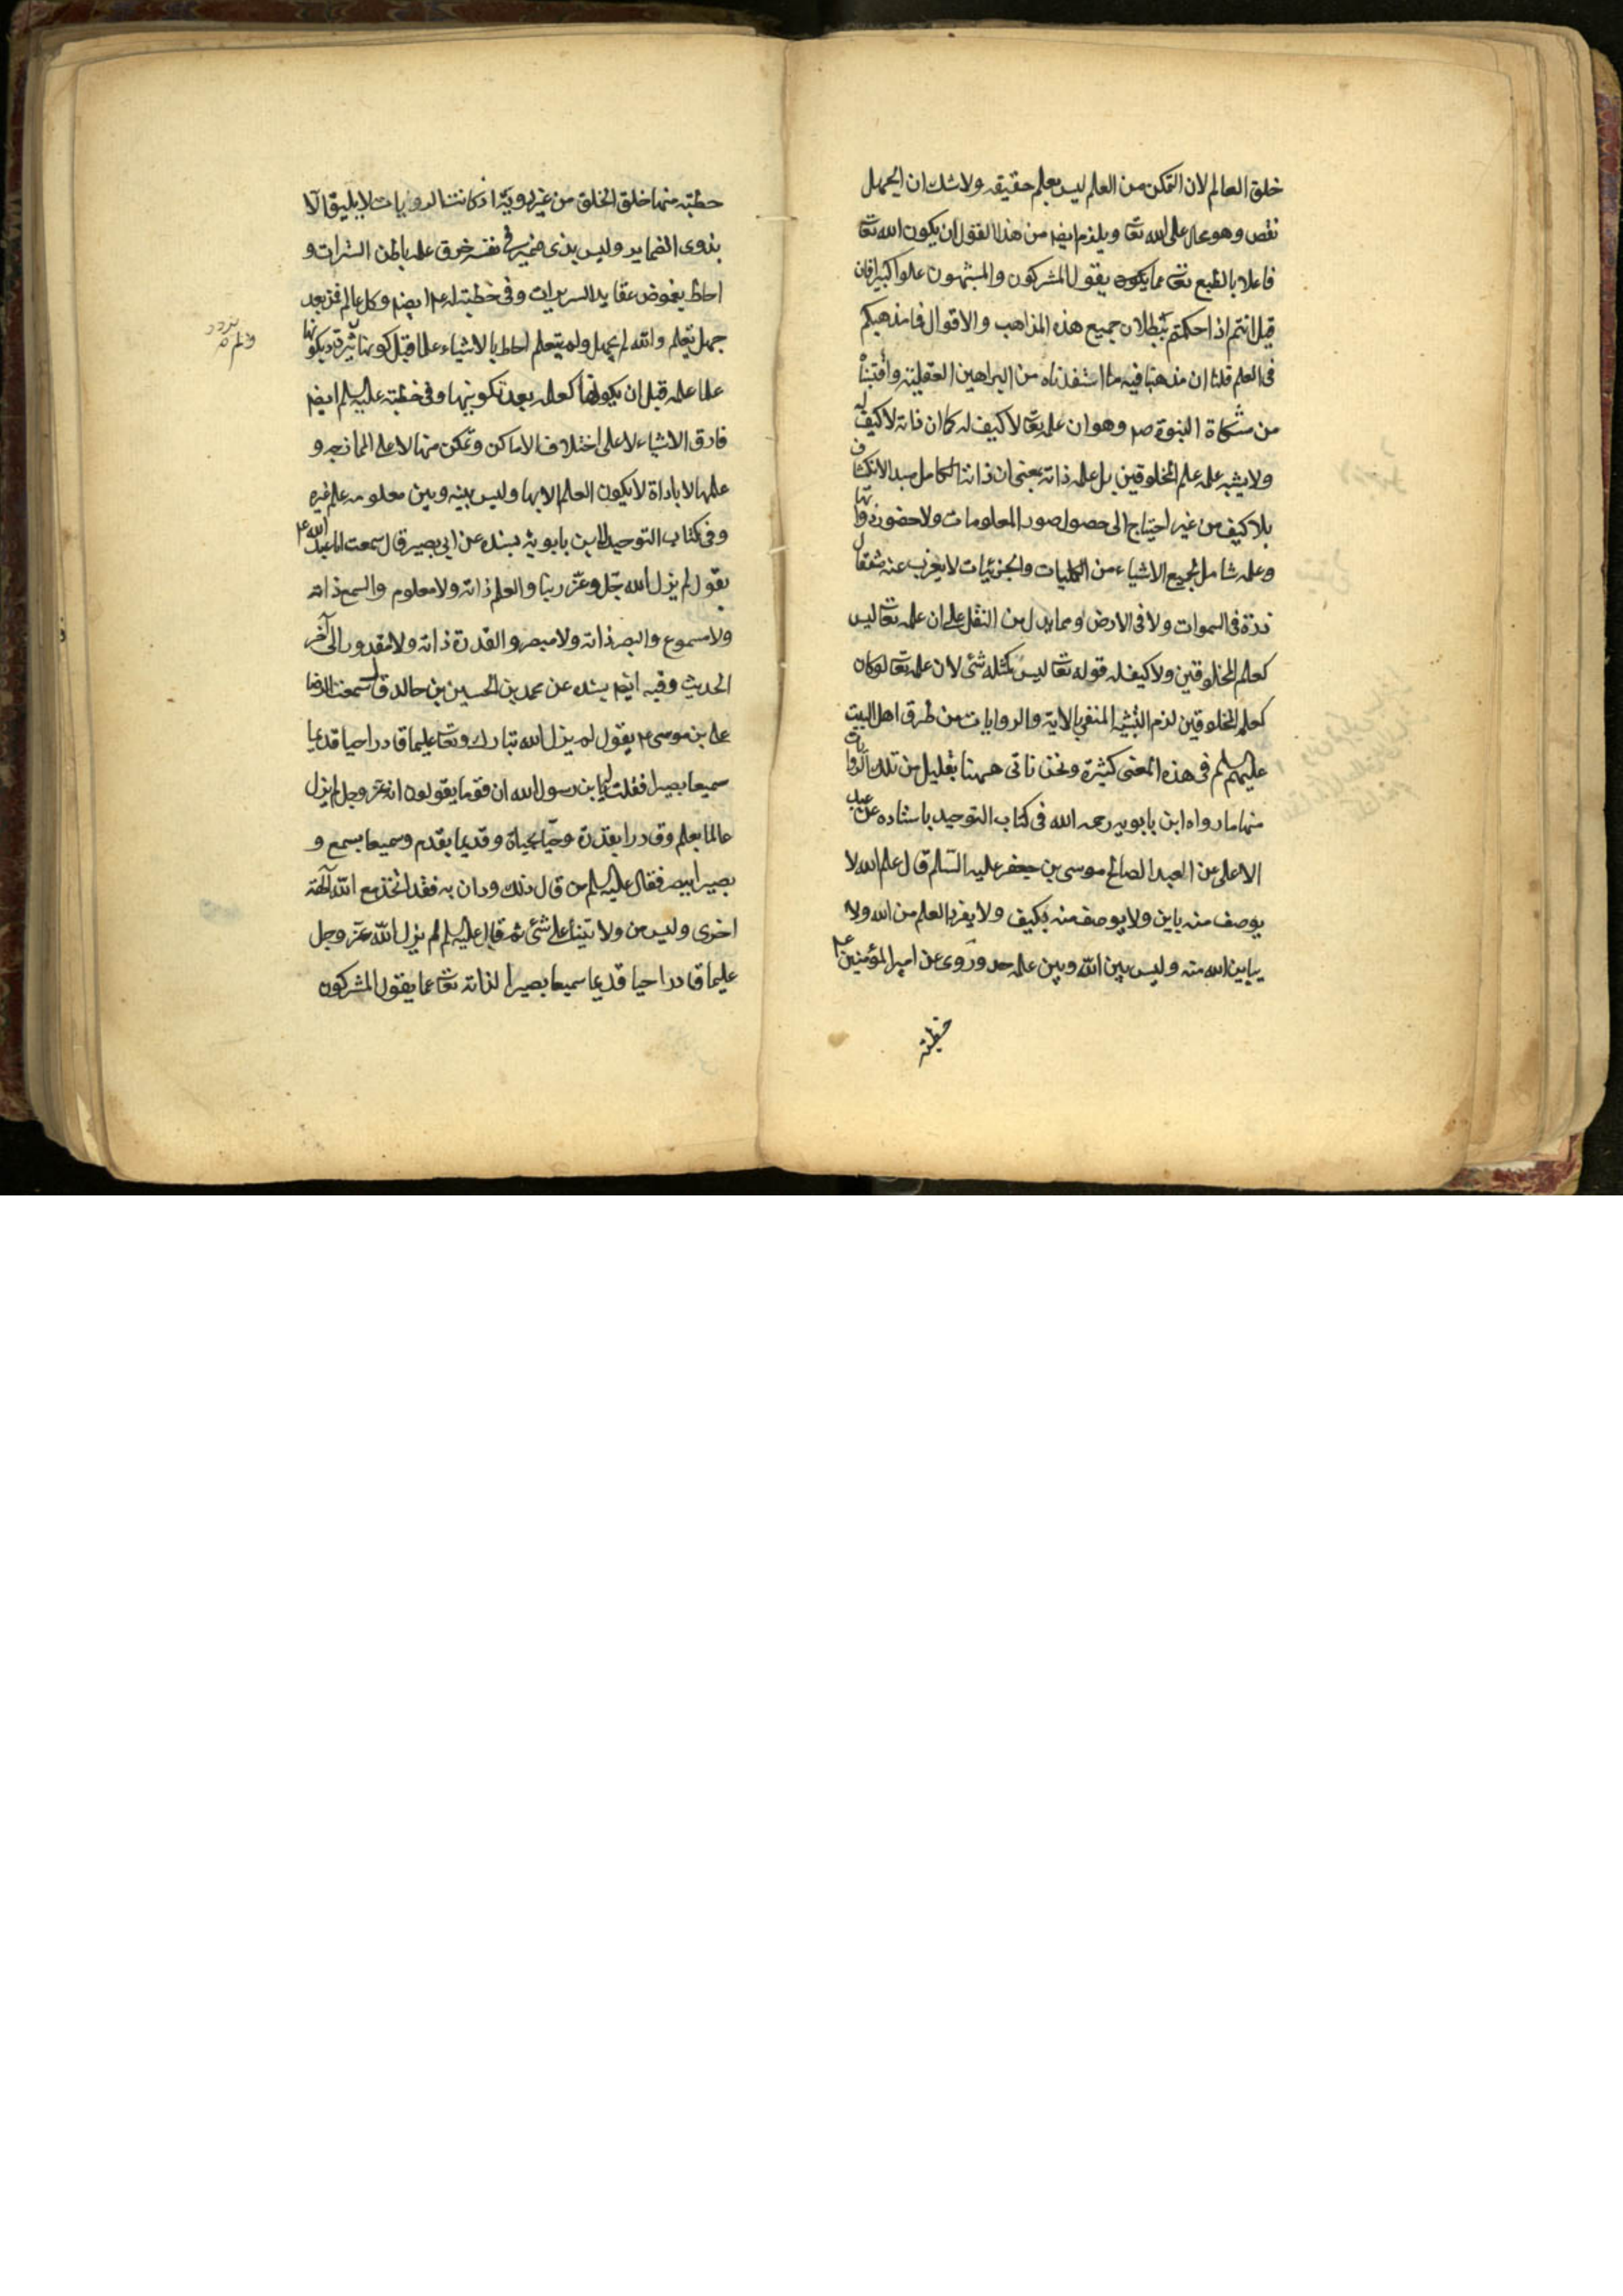 خلق العالم لان التمكن من العلم ليس بعلم حقيقه ولا شك ان الجهل
نقص وهو محال على الله تعا ويلزم ايضا من هذا القول ان يكون الله تعا
فاعلا بالطبع تعا عما يقول المشركون والمشبهون علوا كبيرا فان
قيل انتم اذا حكمتم ببطلان جميع هذه المذاهب والاقوال فما مذهبكم
فى العلم قلنا ان مذهبنا فيه ما استفدناه من البراهين العقلية واقتبسناه
من مشكاة النبوة ص وهو ان علمه تعا لا كيف له كما ان ذاته لا كيف له
ولا يشبه علمه علم المخلوقين بل علمه ذاته بمعنى ان ذاته الكامل مبدء الانكشاف
بلا كيف من غير احتياج الى حصول صور المعلومات ولا حضور ذواتها
وعلمه شامل لجميع الاشياء من الكليات والجزئيات لا يعزب عنه مثقال
ذرة فى السموات ولا فى الارض ومما يدل من النقل على ان علمه تعا ليس
كعلم المخلوقين ولا كيف له قوله تعا ليس كمثله شئ لان علمه تعا لو كان
كعلم المخلوقين لزم التشبيه المنفي بالاية والروايات من طرق اهل البيت
عليهم السلم فى هذه المعنى كثيرة ونحن ناتى ههنا بقليل من تلك الروايات
منها ما رواه ابن بابويه رحمه الله فى كتاب التوحيد باسناده عن عبد
الاعلى عن العبد الصالح موسى بن جعفر عليه السلم قال علم الله لا
يوصف منه باين ولا يوصف منه بكيف ولا يفرد العلم من الله ولا
يباين الله منه وليس بين الله وبين علمه حد وروى عن امير المؤمنين ع
خطبته
خطبته منها خلق الخلق من غير روية اذ كانت الرويات لا يليق الا
بذوى الضماير وليس بذى ضمير فى نفسه خرق علمه باطن السترات و
احاط بغموض عقايد السريرات وفى خطبة له ع ايضا وكل عالم فمن بعد
جهل تعلم والله لم يجهل ولم يتعلم احاط بالاشياء علما قبل كونها فلم يزدد بكونها
علما علمه قبل ان يكونها كعلمه بعد تكوينها وفى خطبته عليه السلم ايضا
فارق الاشياء لا على اختلاف الاماكن وتمكن منها لا على الممازجه و
علمها لا باداة لا يكون العلم الا بها وليس بينه وبين معلومه علم غيره
وفى كتاب التوحيد لابن بابويه بسنده عن ابي بصير قال سمعت ابا عبد الله ع
يقول لم يزل الله جل وعز ربنا والعلم ذاته ولا معلوم والسمع ذاته
ولا مسموع والبصر ذاته ولا مبصر والقدرة ذاته ولا مقدور الى آخر
الحديث وفيه ايضا بسنده عن محمد بن الحسين بن خالد قال سمعت الرضا
على بن موسى ع يقول لم يزل الله تبارك وتعا عليما قادرا حيا قديما
سميعا بصيرا فقلت له يا بن رسول الله ان قوما يقولون انه عز وجل لم يزل
عالما بعلم وقادرا بقدرة وحيا بحياة وقديما بقدم وسميعا بسمع و
بصيرا ببصر فقال عليه السلم من قال ذلك ودان به فقد اتخذ مع الله آلهة
اخرى وليس من ولايتنا على شئ ثم قال عليه السلم لم يزل الله عز وجل
عليما قادرا حيا قديما سميعا بصيرا لذاته تعا عما يقول المشركون